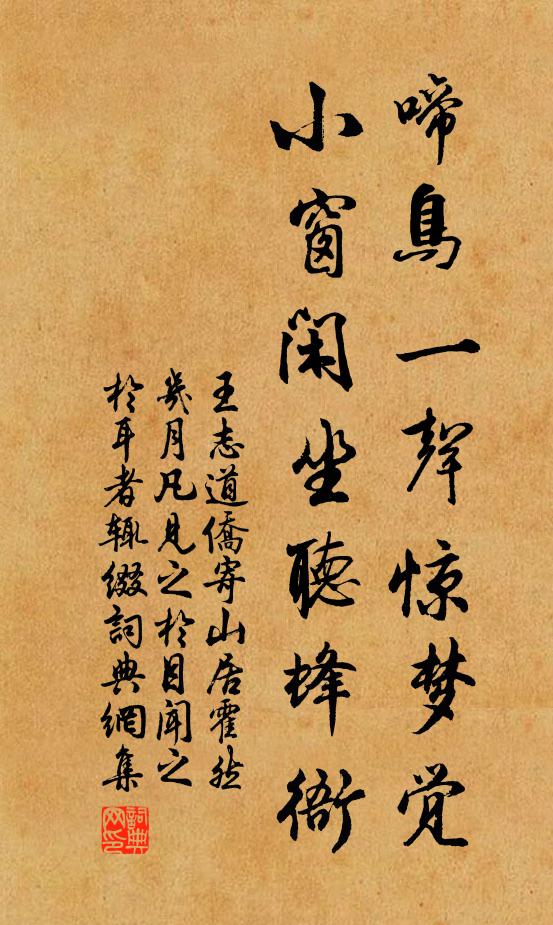 啼鳥一聲惊梦觉
小窗閑坐聽蜂衙
王志道僑寄山居霍然
幾月凡見之於目聞之
於耳者辄缀詞典網集
詞典网印